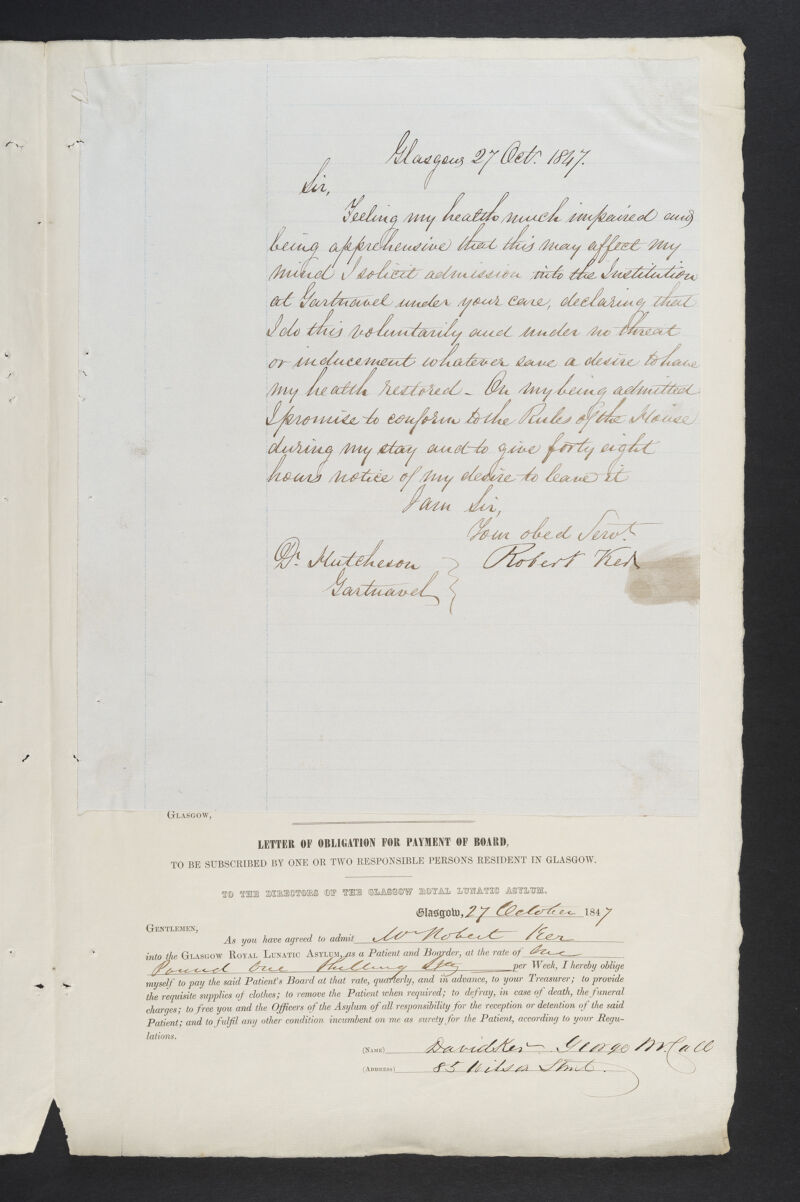 Glasgow 27 Oct. 1847.
Sir,
Feeling my health much impaired and
being apprehensive that this may affect my
mind I solicit admission into the Institution
at Gartnavel under your care, declaring that
I do this voluntarily and under no threat
or inducement whatever save a desire to have
my health restored - On my being admitted
I promise to conform to the Rules of the House
during my stay and to give forty eight
hours notice of my desire to leave it
I am Sir,
Your obed Servt.
Dr. Hutcheson Robert Ker
Gartnavel
GLASGOW,
LETTER OF OBLIGATION FOR PAYMENT OF BOARD,
TO BE SUBSCRIBED BY ONE OR TWO RESPONSIBLE PERSONS RESIDENT IN GLASGOW.
TO THE DIRECTORS OF THE GLASGOW ROYAL LUNATIC ASYLUM.
Glasgow, 27 October 1847
GENTLEMEN,
As you have agreed to admit Mr Robert Ker
into the GLASGOW ROYAL LUNATIC ASYLUM, as a Patient and Boarder, at the rate of One
Pound One Shilling Stg per Week, I hereby oblige
myself to pay the said Patient's Board at that rate, quarterly, and in advance, to your Treasurer; to provide
the requisite supplies of clothes; to remove the Patient when required; to defray, in case of death, the funeral
charges; to free you and the Officers of the Asylum of all responsibility for the reception or detention of the said
Patient; and to fulfil any other condition incumbent on me as surety for the Patient, according to your Regu-
lations.
(NAME) David Ker George McCall
(ADDRESS) 85 Wilson Street.